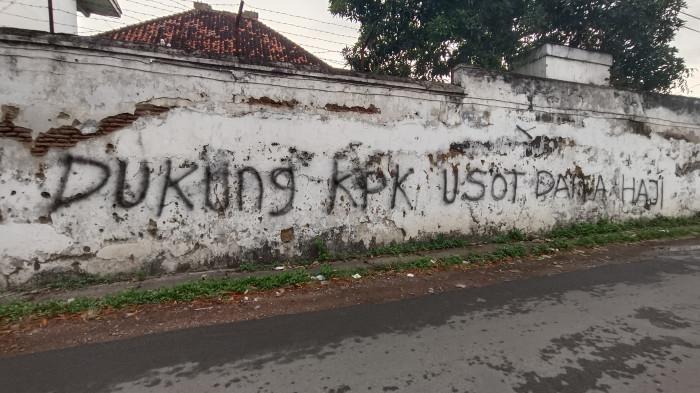 DUKUng KPK USOT DANA HAJI